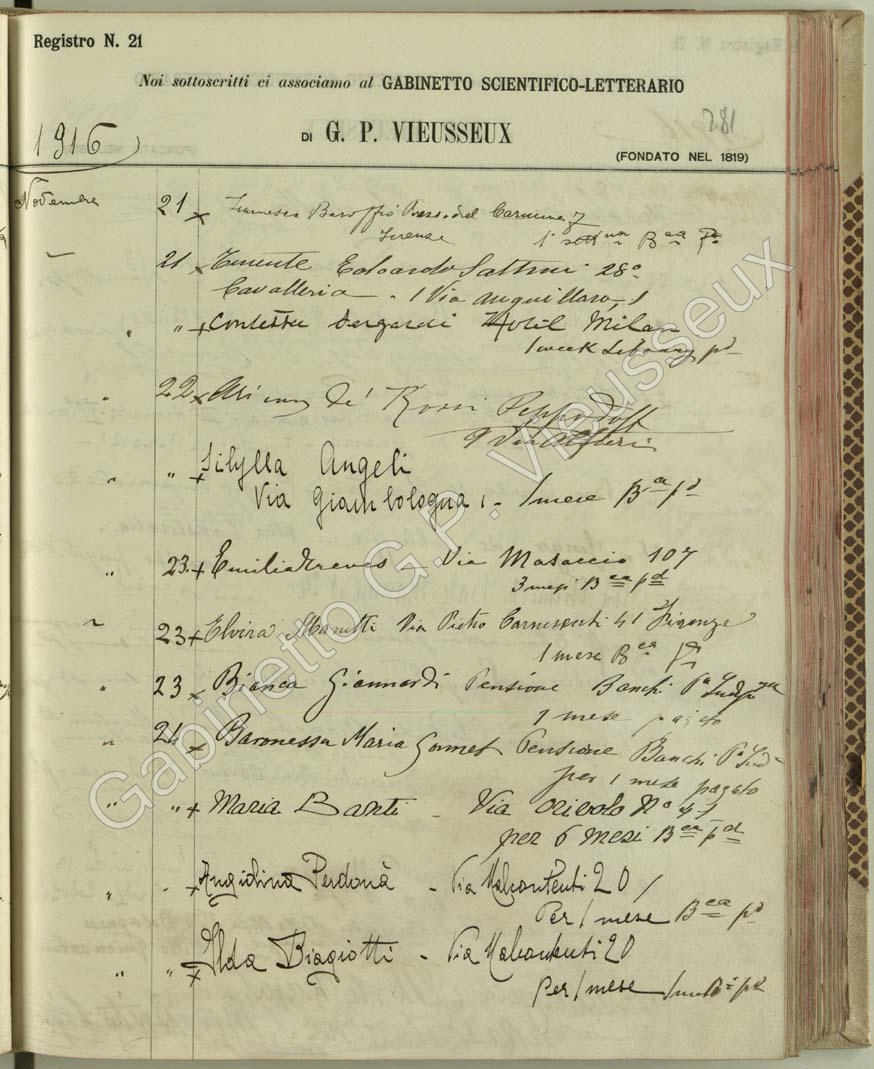 Registro N. 21
Noi sottoscritti ci associamo al GABINETTO SCIENTIFICO-LETTERARIO
281
1916
DI G. P. VIEUSSEUX
(FONDATO NEL 1819)
Novembre 21 x Francesco Baroffio Carmine 7
Firenze 1 Bca
" 21 x Tenente Edoardo 28º
Cavalleria - 1 Via Anguillara, 1
" " x Contessa Bergardi Hotel Milan
1 week Library pd
" 22 x de' Rossi
9 Via Alfieri
" " + Sibylla Angeli
Via Giambologna 1 - 1 mese Ba pd
" 23 + Emilia Treves - Via Masaccio 107
3 mesi Bca pd
" 23 + Elvira Manetti Via Pietro Carnesecchi 41 Firenze
1 mese Bca
" 23 x Bianca Giannardi Pensione Banchi Pa Indpza
1 mese pagato
" 24 x Baronessa Maria Pensione Banchi Pa Ind
per 1 mese pagato
" " + Maria Banti - Via Oriolo No 41
per 6 mesi Bca pd
" " + Angiolina Perdonà - Via Malcontenti 20
Per 1 mese Bca pd
" " x Ilda Biagiotti - Via Malcontenti 20
per 1 mese pd
Gabinetto G.P. Vieusseux